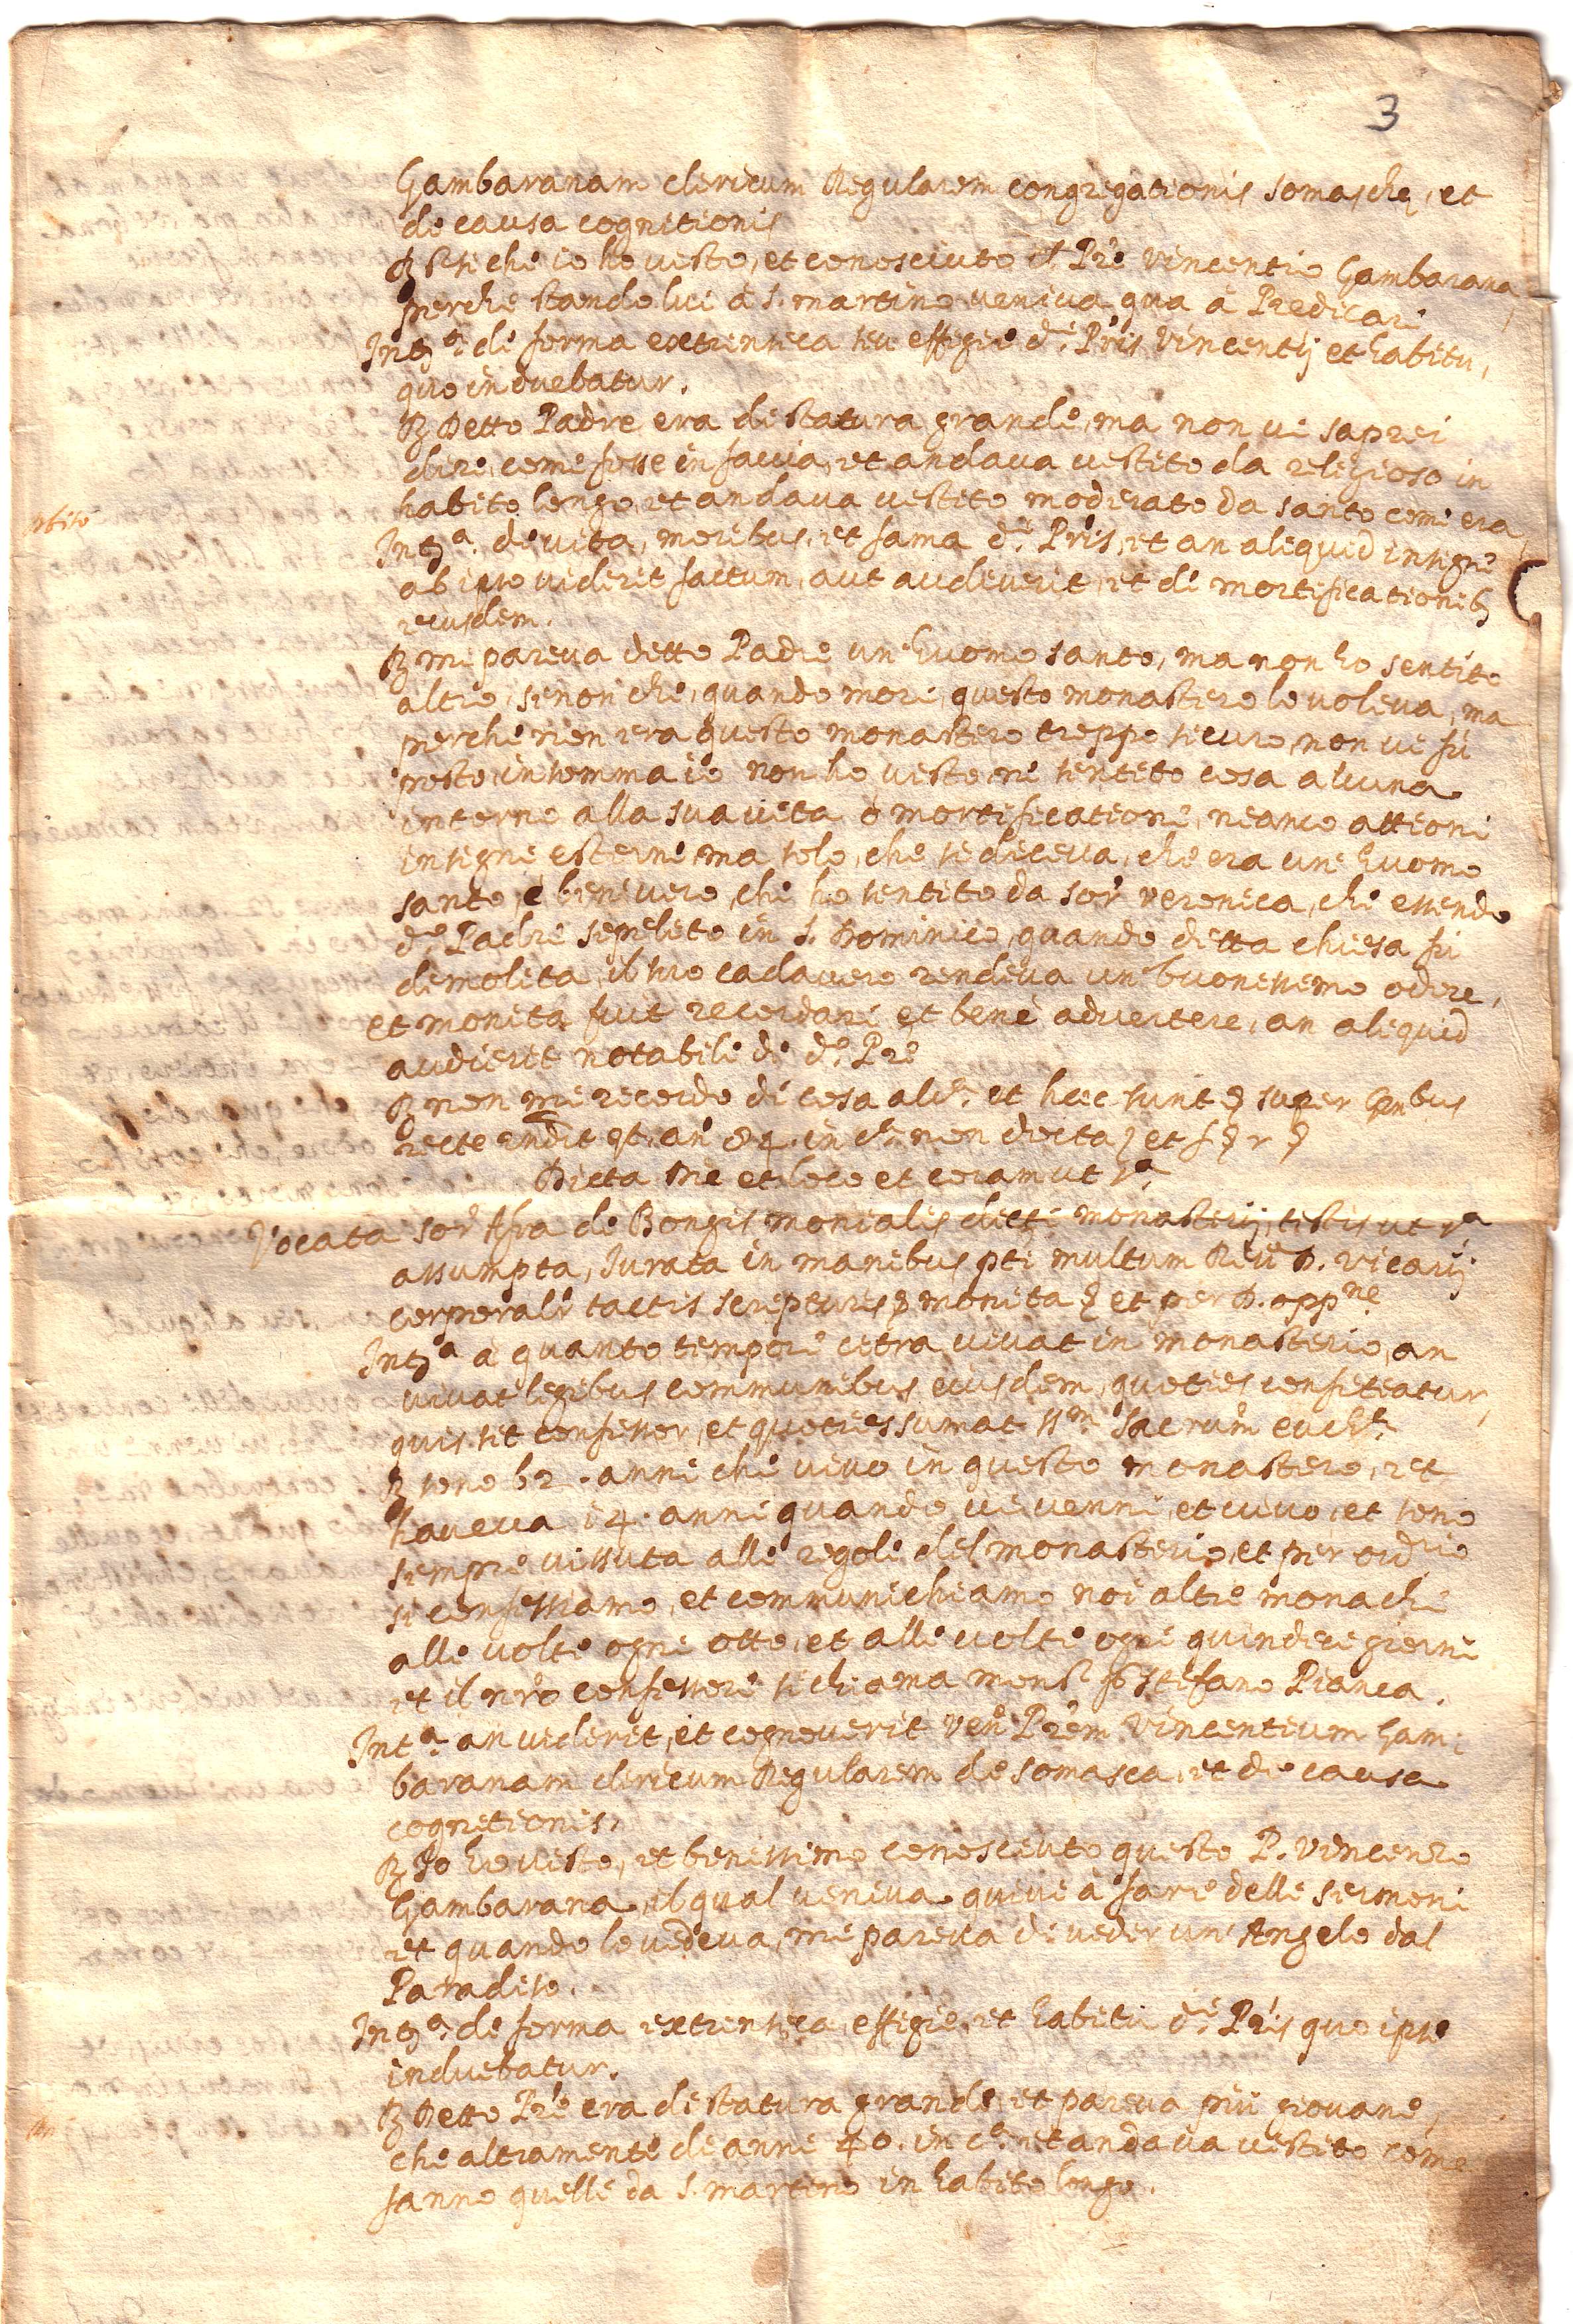 3
Gambaranam clericum Regularem congregationis somaschę, et
de causa cognitionis
che io ho visto, et conosciuto il Prē Vincentio Gambarana
perche stando lui à S. Martino veniva qua à Predicare
Intª. de forma extrinseca seu effigie d.i Pris Vincentij et habitu,
quo induebatur.
R Detto Padre era di statura grande, ma non vi saprei
dire, come fosse in faccia, et andava vestito da religioso in
habito longo, et andava vestito moderato da santo come era
Intª. de vita, moribus, et fama d.i Pris, et an aliquid insigne
ab ipso viderit factum, aut audiverit, et de mortificationib9
eiusdem.
R mi pareva detto Padre un' huomo santo, ma non ho sentito
altro, se non che, quando morì, questo monastero lo voleva, ma
perche non era questo monastero troppo sicuro, non vi fù
posto, in somma io non ho visto, ne sentito cosa alcuna
intorno alla sua vita ò mortificatione, neanco attioni
insigne esterne, ma solo, che si diceva, che era un' huomo
santo, è ben vero, che ho sentito da sor Veronica, che essendo
d.o Padre sepelito in S. Dominico, quando detta chiesa fù
demolita, il suo cadavero rendeva un buonissimo odore,
et monita fuit recordari et bene advertere, an aliquid
audierit notabile de d.o Prē
R non mi recordo di cosa alc.a et hæc sunt super quibus
recte an 84. in c.a non docta et
Dicta die et loco et coram ut sª.
Vocata sor Afra de Bongis monialis dicti monasterij, testis ut sª
assumpta, Iurata in manibus pti multum Rev. D. Vicarij
corporalr tactis scripturis monita et per D. opp.ne
Intª à quanto tempore citra vivat in monasterio, an
vivat legibus communibus eiusdem, quoties confiteatur,
quis sit confessor, et quoties sumat SS.m Sacrum euch.
R sono 62. anni che vivo in questo monastero, et
haveva 14. anni quando vi venni, et vivo, et sono
sempre vissuta alle regole del monasterio, et per ordrio
si confessiamo, et communichiamo noi altre monache
alle volte ogni otto, et alle volte ogni quindeci giorni
et il nrō confessore si chiama mons.r Stefano Pianca.
Intª. an viderit, et cognoverit Ven. Prēm Vincentium Gam:
baranam clericum Regularem de Somasca, et de causa
cognitionis.
R Io ho visto, et benissimo conosciuto questo P. Vincenzo
Gambarana, il qual veniva quivi à fare delli sermoni
et quando lo vedeva, mi pareva di veder un' Angelo dal
Paradiso.
Intª. de forma extrinseca, effigie, et habitu d.i Pris quo ipse
induebatur.
R Detto Prē era di statura grande et pareva più giovane,
che altramente de anni 40. in c.a et andava vestito come
fanno quelli da S. Martino in habito longo.